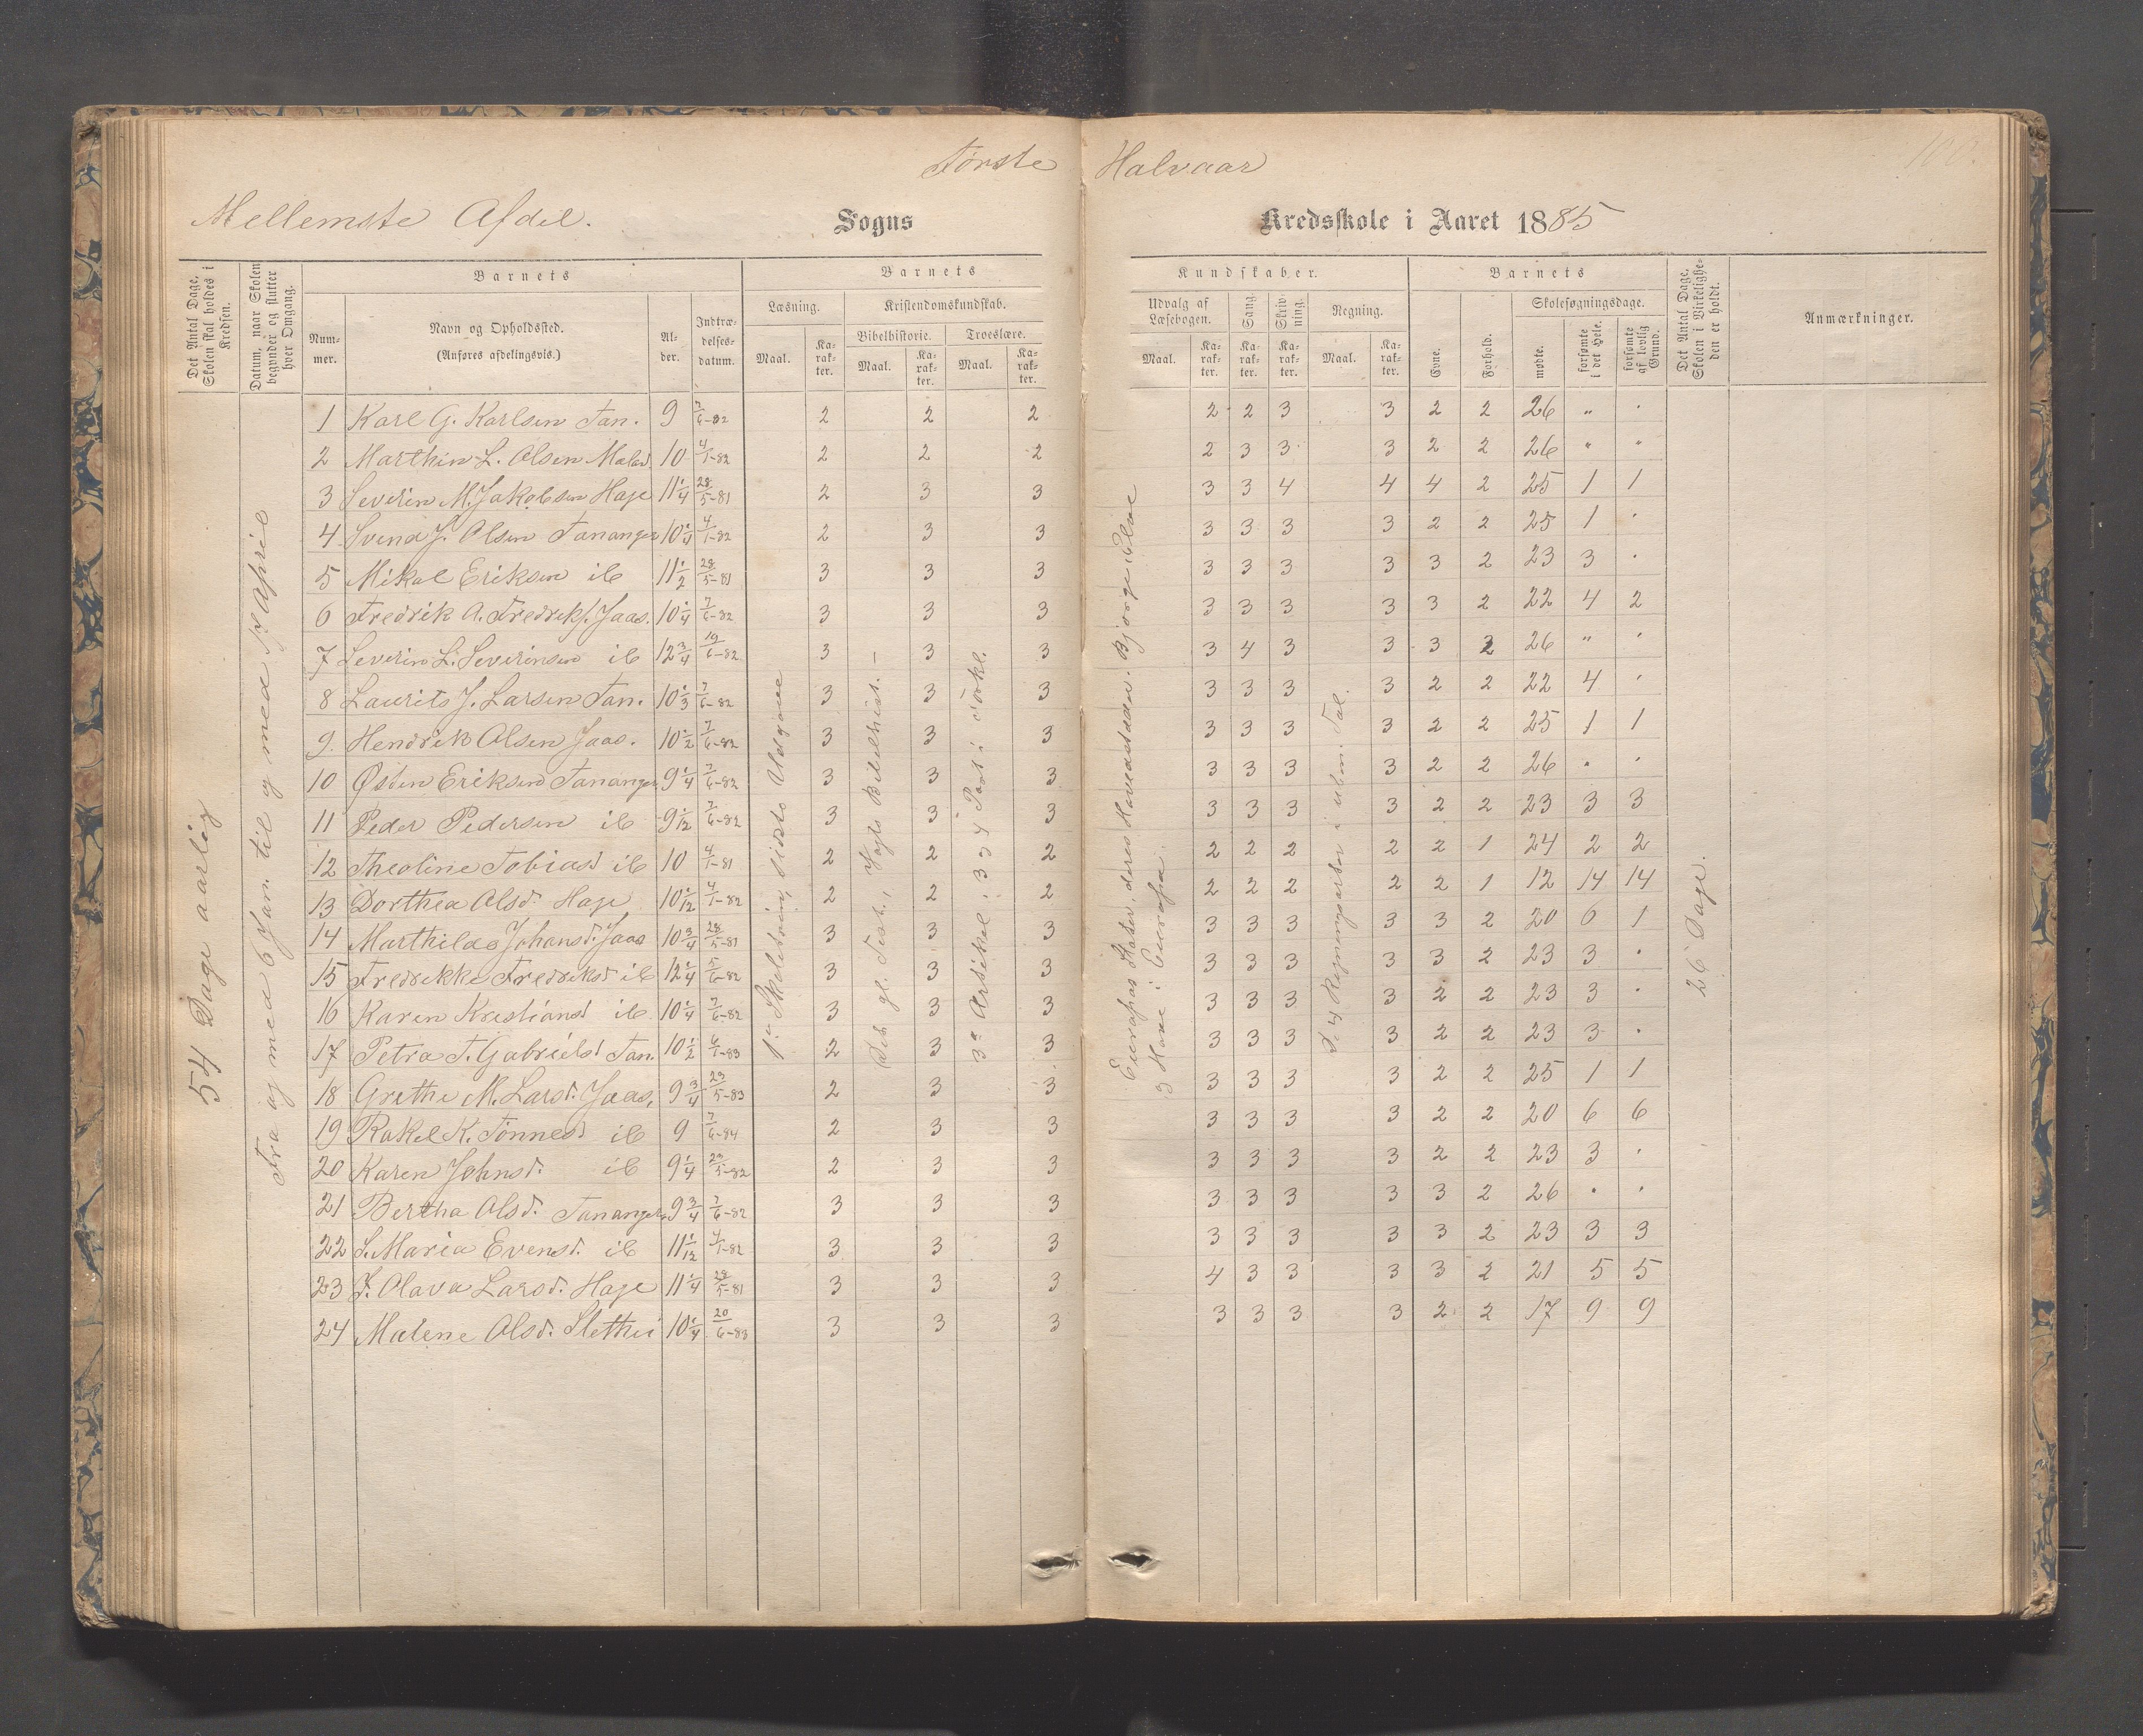 Første Halvaar
100.
Mellemste Afdel. Sogns Kredsskole i Aaret 1885
Det Antal Dage, Skolen skal holdes i Kredsen.
Datum, naar Skolen begynder og slutter hver Omgang.
Barnets
Nummer.
Navn og Opholdssted.
(Anføres afdelingsvis.)
Alder.
Indtrædelsesdatum.
Barnets Kundskaber.
Læsning.
Kristendomskundskab.
Bibelhistorie. Troeslære.
Maal. Karakter. Maal. Karakter. Maal. Karakter.
Udvalg af Læsebogen. Sang. Skrivning. Regning.
Maal. Karakter. Karakter. Karakter. Maal. Karakter.
Barnets
Evne. Forhold.
Skolesøgningsdage.
mødte. forsømte i det Hele. forsømte af lovlig Grund.
Det Antal Dage, Skolen i Virkeligheden er holdt.
Anmærkninger.
54 Dage aarlig
Fra og med 6 Jan. til og med 18 April
1 Karl G. Karlsen Tan. 9 7/6-82 2 2 2 2 2 3 3 2 2 26 " "
2 Marthin L. Olsen 10 4/1-82 2 2 2 2 3 3 3 2 2 26 " "
3 Severin M. Jakobsen Hage 11 1/4 28/5-81 2 3 3 3 3 4 4 4 2 25 1 1
4 Svend J. Olsen Tananger 10 1/4 4/1-82 2 3 3 3 3 3 3 2 2 25 1 "
5 Mikal Eriksen ib 11 1/2 28/5-81 3 3 3 3 3 3 3 3 2 23 3 "
6 Fredrik A. Fredriks. Jaas. 10 1/4 7/6-82 3 3 3 3 3 3 3 3 2 22 4 2
7 Severin L. Severinsen ib 12 3/4 19/6-82 3 3 3 3 4 3 3 3 2 26 " "
8 Laurits J. Larsen Tan. 10 1/3 7/6-82 3 3 3 3 3 3 3 2 2 22 4 "
9. Hendrik Olsen Jaas. 10 1/2 7/6-82 3 3 3 3 3 3 3 2 2 25 1 1
10 Østen Eriksen Tananger 9 1/4 7/6-82 3 3 3 3 3 3 3 2 2 26 " "
11 Peder Pedersen ib 9 1/12 7/6-82 3 3 3 3 3 3 3 2 2 23 3 3
12 Theoline Tobiasd ib 10 4/1-81 2 2 2 2 2 2 2 2 1 24 2 2
13 Dorthea Olsd. Hage 10 1/12 4/1-82 2 2 2 2 2 2 2 2 1 12 14 14
14 Marthilde Johansd. Jaas 10 3/4 28/5-81 3 3 3 3 3 3 3 3 2 20 6 1
15 Fredrikke Fredriksd ib 12 1/4 5/6-82 3 3 3 3 3 3 3 3 2 23 3 "
16 Karen Kristiansd ib 10 1/4 7/6-82 3 3 3 3 3 3 3 2 2 23 3 "
17 Petra T. Gabrielsd Tan. 10 1/2 6/1-83 2 3 3 3 3 3 3 2 2 23 3 "
18 Grethe M. Larsd. Jaas, 9 3/4 23/5-83 2 3 3 3 3 3 3 2 2 25 1 1
19 Rakel K. Tønnesd ib 9 7/6-84 2 3 3 3 3 3 3 2 2 20 6 6
20 Karen Johnsd. ib 9 1/4 23/5-82 2 3 3 3 3 3 3 2 2 23 3 "
21 Bertha Olsd. Tananger 9 3/4 7/6-82 3 3 3 3 3 3 3 3 2 26 " "
22 S. Maria Evensd. ib 11 1/12 4/1-82 3 3 3 3 3 3 3 3 2 23 3 3
23 J. Olava Larsd. Hage 11 1/4 28/5-81 3 3 3 4 3 3 3 3 2 21 5 5
24 Malene Olsd. Slethei 10 1/4 20/6-83 3 3 3 3 3 3 3 2 2 17 9 9
1ste Skoletrin, sidste Udgave
Det gl. Test., Vogts Bibelhist.
3e Artikel i 3 & 4 Part i Forkl.
Europas Stater, deres Hovedstæder. Bjerge, Elve
& Have i Europa.
De 4 Regningsarter i ubен. Tal.
26 Dage.